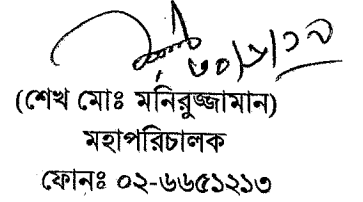 ৩০/৬/১৯
(শেখ মোঃ মনিরুজ্জামান)
মহাপরিচালক
ফোনঃ ০২-৬৬৫১২১৩